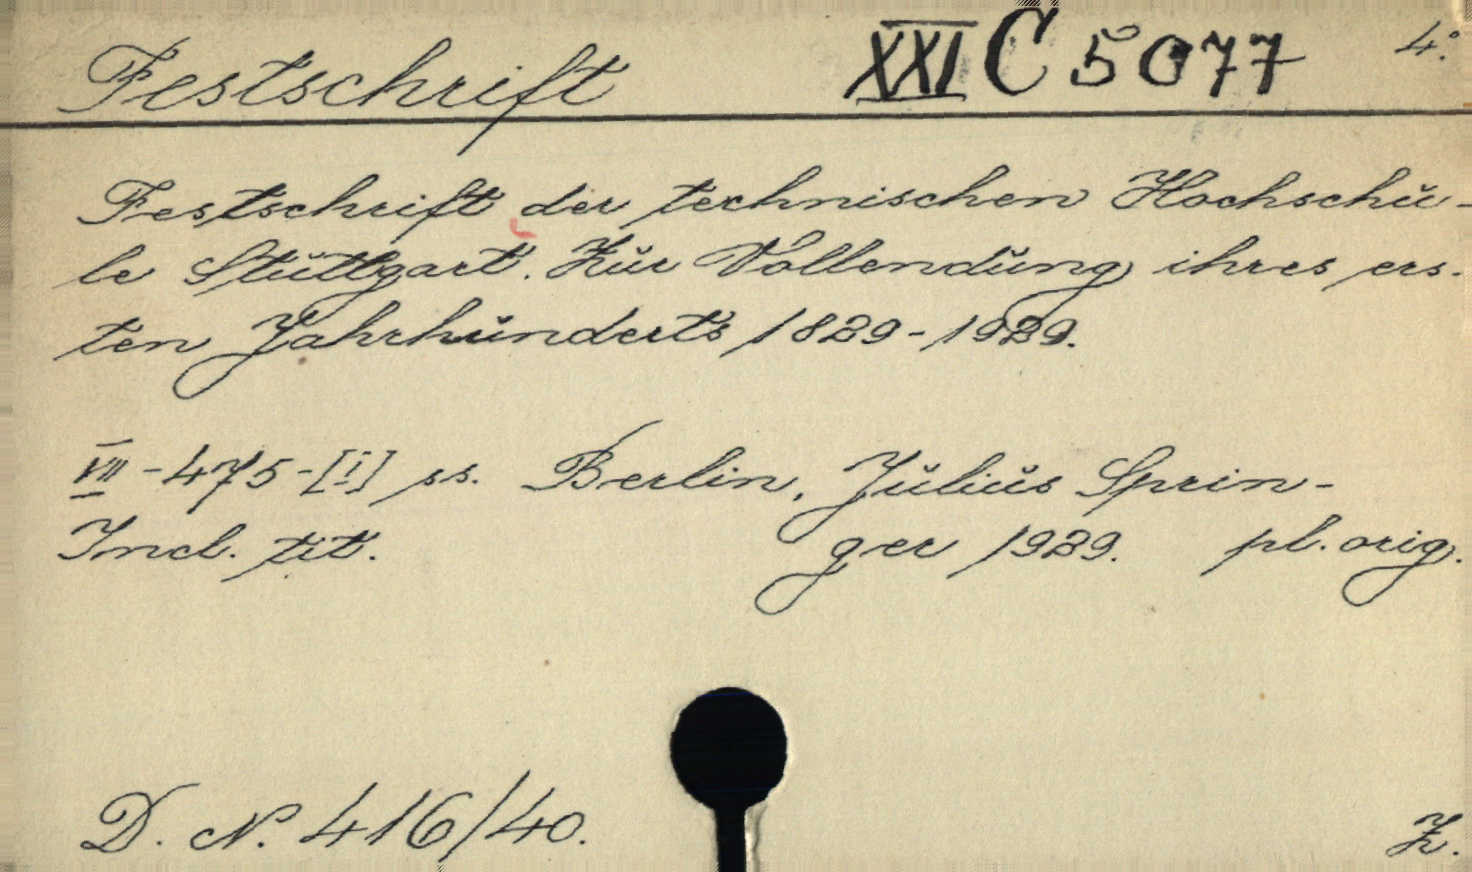 Festschrift XXI C 5077 4°.
Festschrift der technischen Hochschŭ-
le Stŭttgart. Zŭr Vollendŭng ihres ers-
ten Jahrhŭnderts 1829-1929.
VIII-475-[i] ss. Berlin, Jŭliŭs Sprin-
Incl. tit. ger 1929. pl. orig.
D. N. 416/40. Z.